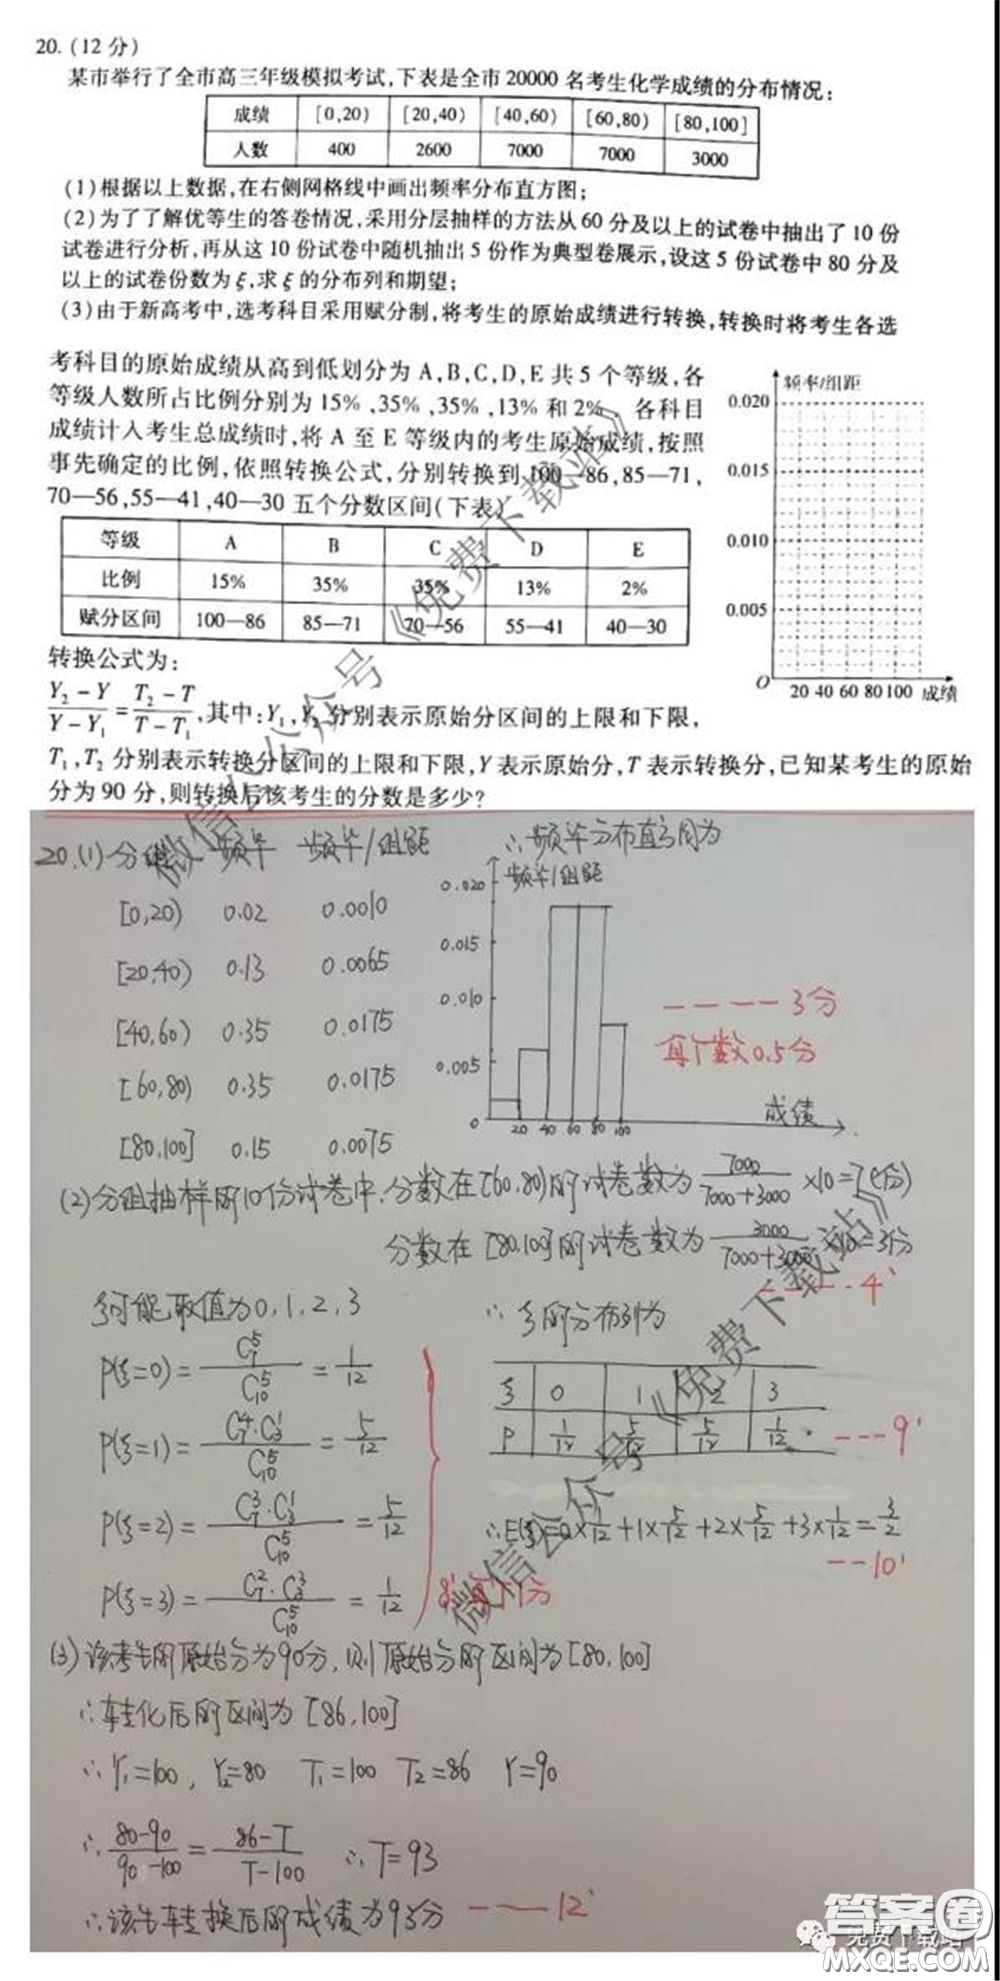 20. (12 分)
某市举行了全市高三年级模拟考试,下表是全市 20000 名考生化学成绩的分布情况:
成绩 [0,20) [20,40) [40,60) [60,80) [80,100]
人数 400 2600 7000 7000 3000
(1)根据以上数据,在右侧网格线中画出频率分布直方图;
(2)为了了解优等生的答卷情况,采用分层抽样的方法从 60 分及以上的试卷中抽出了 10 份
试卷进行分析,再从这 10 份试卷中随机抽出 5 份作为典型卷展示,设这 5 份试卷中 80 分及
以上的试卷份数为 ξ,求 ξ 的分布列和期望;
(3)由于新高考中,选考科目采用赋分制,将考生的原始成绩进行转换,转换时将考生各选
考科目的原始成绩从高到低划分为 A,B,C,D,E 共 5 个等级,各
等级人数所占比例分别为 15%,35%,35%,13% 和 2%,各科目
成绩计入考生总成绩时,将 A 至 E 等级内的考生原始成绩,按照
事先确定的比例,依照转换公式,分别转换到 100—86,85—71,
70—56,55—41,40—30 五个分数区间(下表)
频率/组距
0.020
0.015
0.010
0.005
O 20 40 60 80 100 成绩
等级 A B C D E
比例 15% 35% 35% 13% 2%
赋分区间 100—86 85—71 70—56 55—41 40—30
转换公式为:
(Y₂-Y)/(Y-Y₁)=(T₂-T)/(T-T₁),其中:Y₁,Y₂分别表示原始分区间的上限和下限,
T₁,T₂ 分别表示转换分区间的上限和下限,Y 表示原始分,T 表示转换分,已知某考生的原始
分为 90 分,则转换后该考生的分数是多少?
20.(1) 分组 频率 频率/组距 ∴频率分布直方图为
[0,20) 0.02 0.0010
[20,40) 0.13 0.0065
[40,60) 0.35 0.0175
[60,80) 0.35 0.0175
[80,100] 0.15 0.0075
频率/组距
0.020
0.015
0.010
0.005
0 20 40 60 80 100 成绩
----3分
每个数0.5分
(2)分组抽样所10份试卷中,分数在[60,80)的试卷数为 7000/(7000+3000) ×10=7(份)
分数在[80,100]的试卷数为 3000/(7000+3000) ×10=3份
----4'
ξ可能取值为0,1,2,3 ∴ξ的分布列为
P(ξ=0)=C₇⁵/C₁₀⁵=1/12
P(ξ=1)=C₇⁴·C₃¹/C₁₀⁵=5/12
P(ξ=2)=C₇³·C₃¹/C₁₀⁵=5/12
P(ξ=3)=C₇²·C₃³/C₁₀⁵=1/12
ξ 0 1 2 3
P 1/12 5/12 5/12 1/12
---9'
∴E(ξ)=0×1/12+1×5/12+2×5/12+3×1/12=3/2
--10'
(3)该考生的原始分为90分,则原始分的区间为[80,100]
∴转化后的区间为[86,100]
∴Y₁=100, Y₂=80 T₁=100 T₂=86 Y=90
∴(80-90)/(90-100)=(86-T)/(T-100) ∴T=93
∴该生转换后的成绩为93分 ——12'
微信公众号《免费下载站》
微信公众号《免费下载站》
答案圈
免费下载站
MXQE.COM